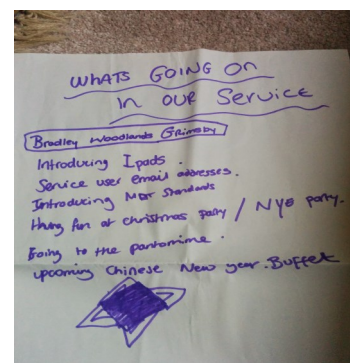 WHATS GOING ON
IN OUR SERVICE
Bradley Woodlands Grimsby
Introducing Ipads.
Service user email addresses.
Introducing MDT Standards
Having fun at christmas party / NYE party.
Going to the pantomime.
upcoming Chinese New year. Buffet